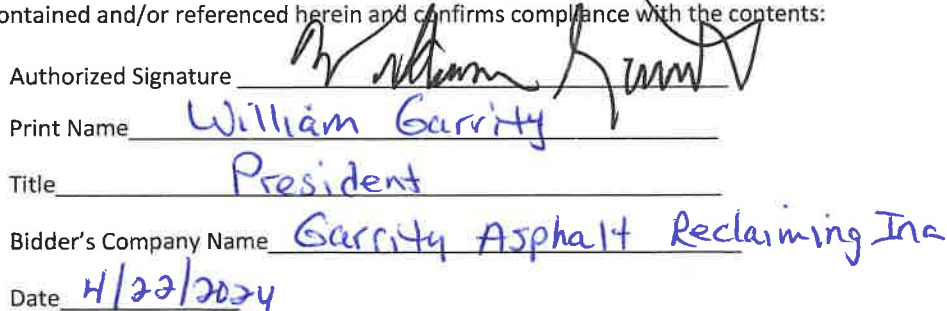 ontained and/or referenced herein and confirms compliance with the contents:
Authorized Signature William Garrity
Print Name William Garrity
Title President
Bidder's Company Name Garrity Asphalt Reclaiming Inc
Date 4/22/2024